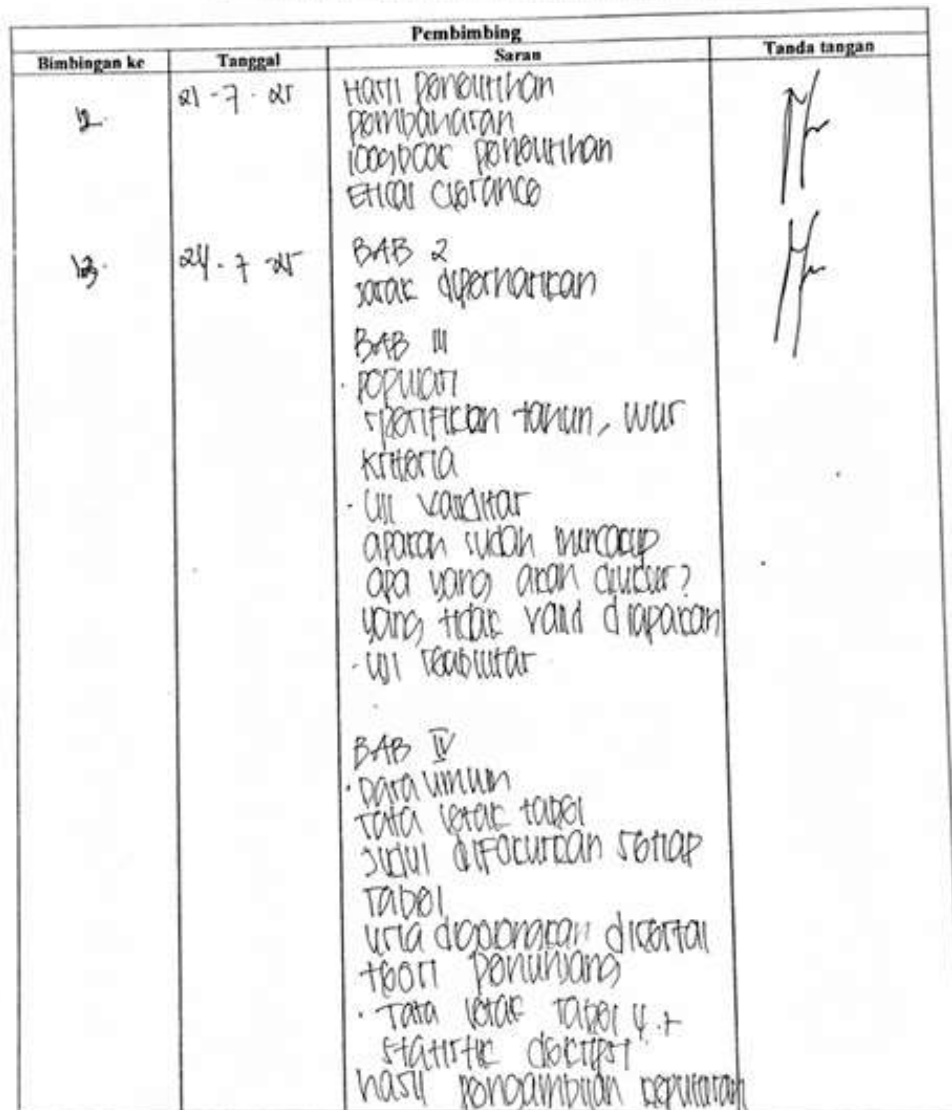 Pembimbing
Bimbingan ke Tanggal Saran Tanda tangan
12. 21-7-25 Hasil penelitian
pembahasan
logbook penelitian
Etical Clerance
13. 24-7-25 BAB 2
jarak diperhatikan
BAB III
· populasi
spesifikkan tahun,
kriteria
· Uji validitas
apakah sudah mencakup
apa yang akan diukur?
yang tidak valid diapakan
· uji reabilitas
BAB IV
· Data umum
Tata letak tabel
Judul difokuskan setiap
Tabel
usia digolongkan disertai
teori penunjang
· Tata letak Tabel 4.7
statistik deskripsi
hasil pengambilan keputusan